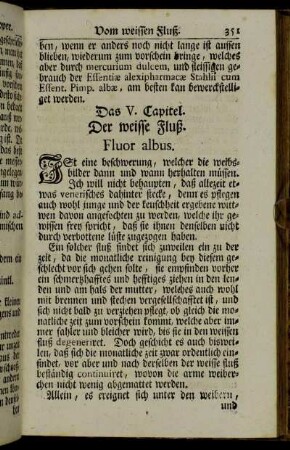 Vom weissen Fluß. 351
ben, wenn er anders noch nicht lange ist aussen
blieben, wiederum zum vorschein bringe, welches
aber durch mercurium dulcem, und fleissigen ge-
brauch der Essentiæ alexipharmacæ Stahlii cum
Essent. Pimp. albæ, am besten kan bewerckstelli-
get werden.
Das V. Capitel.
Der weisse Fluß.
Fluor albus.
Ist eine beschwerung, welcher die weibs-
bilder dann und wann herhalten müssen.
Ich will nicht behaupten, daß allezeit et-
was venerisches dahinter stecke, denn es pflegen
auch wohl junge und der keuschheit ergebene wit-
wen davon angefochten zu werden, welche ihr ge-
wissen frey spricht, daß sie ihnen denselben nicht
durch verbottene lüste zugezogen haben.
Ein solcher fluß findet sich zuweilen ein zu der
zeit, da die monatliche reinigung bey diesem ge-
schlecht vor sich gehen solte, sie empfinden vorher
ein schmertzhafftes und hefftiges ziehen in den len-
den und am hals der mutter, welches auch wohl
mit brennen und stechen vergesellschafftet ist, und
sich nicht bald zu verziehen pflegt, ob gleich die mo-
natliche zeit zum vorschein kommt, welche aber im-
mer fahler und bleicher wird, bis sie in den weissen
fluß degeneriret. Doch geschicht es auch bisswei-
len, daß sich die monatliche zeit zwar ordentlich ein-
findet, vor aber und nach derselben der weisse fluß
beständig continuiret, wovon die arme weiber-
chen nicht wenig abgemattet werden.
Allein, es ereignet sich unter den weibern,
und